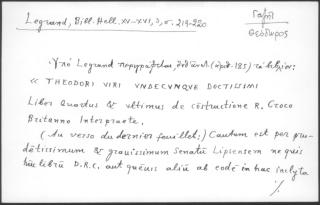 Legrand, Bibl. Hell. XV-XVI, 3, σ. 219-220.
Γαζῆ
Θεόδωρος
Ὑπὸ Legrand περιγράφεται, (ἀριθ. 185)
« THEODORI VIRI VNDECVNQVE DOCTISSIMI
Liber Quartus & vltimus de cōstructione R. Croco
Britanno Interprete.
(Au verso du dernier feuillet:) Cautum est per pru-
dētissimū & grauissimum Senatū Lipsensem ne quis
hūc librū D.R.C. aut quēuis aliū ab eodē in hac inclyta
./.